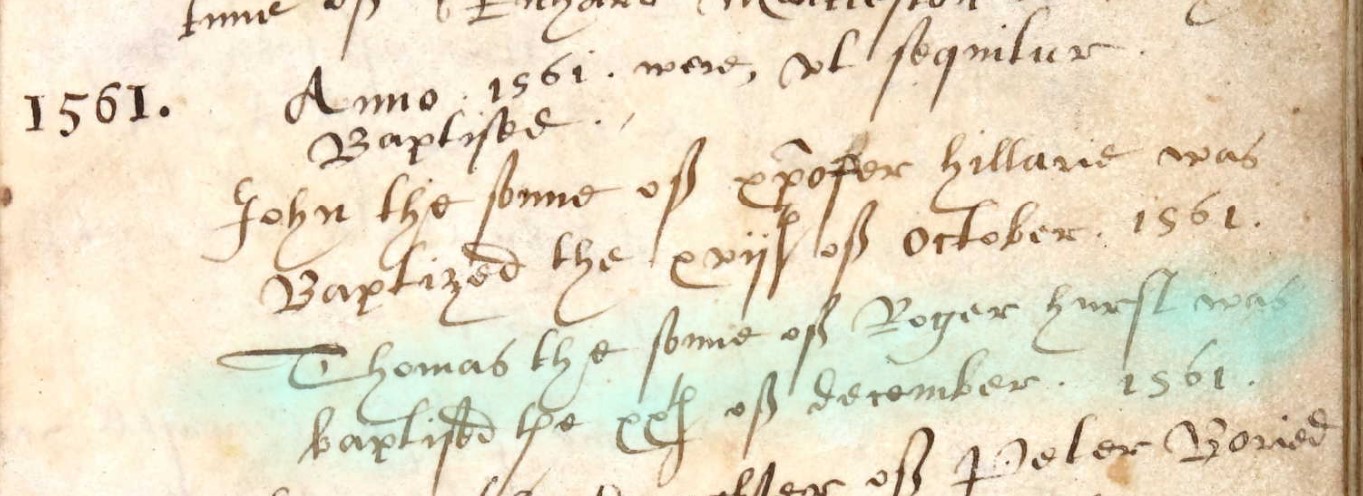 sonne of Richard
1561. Anno . 1561 . were, vt sequitur
Baptised .
John the sonne of xpofer hillarie was
Baptized the xviijth of October . 1561 .
Thomas the sonne of Roger hurst was
baptised the xxth of december . 1561 .
of Peter Boried